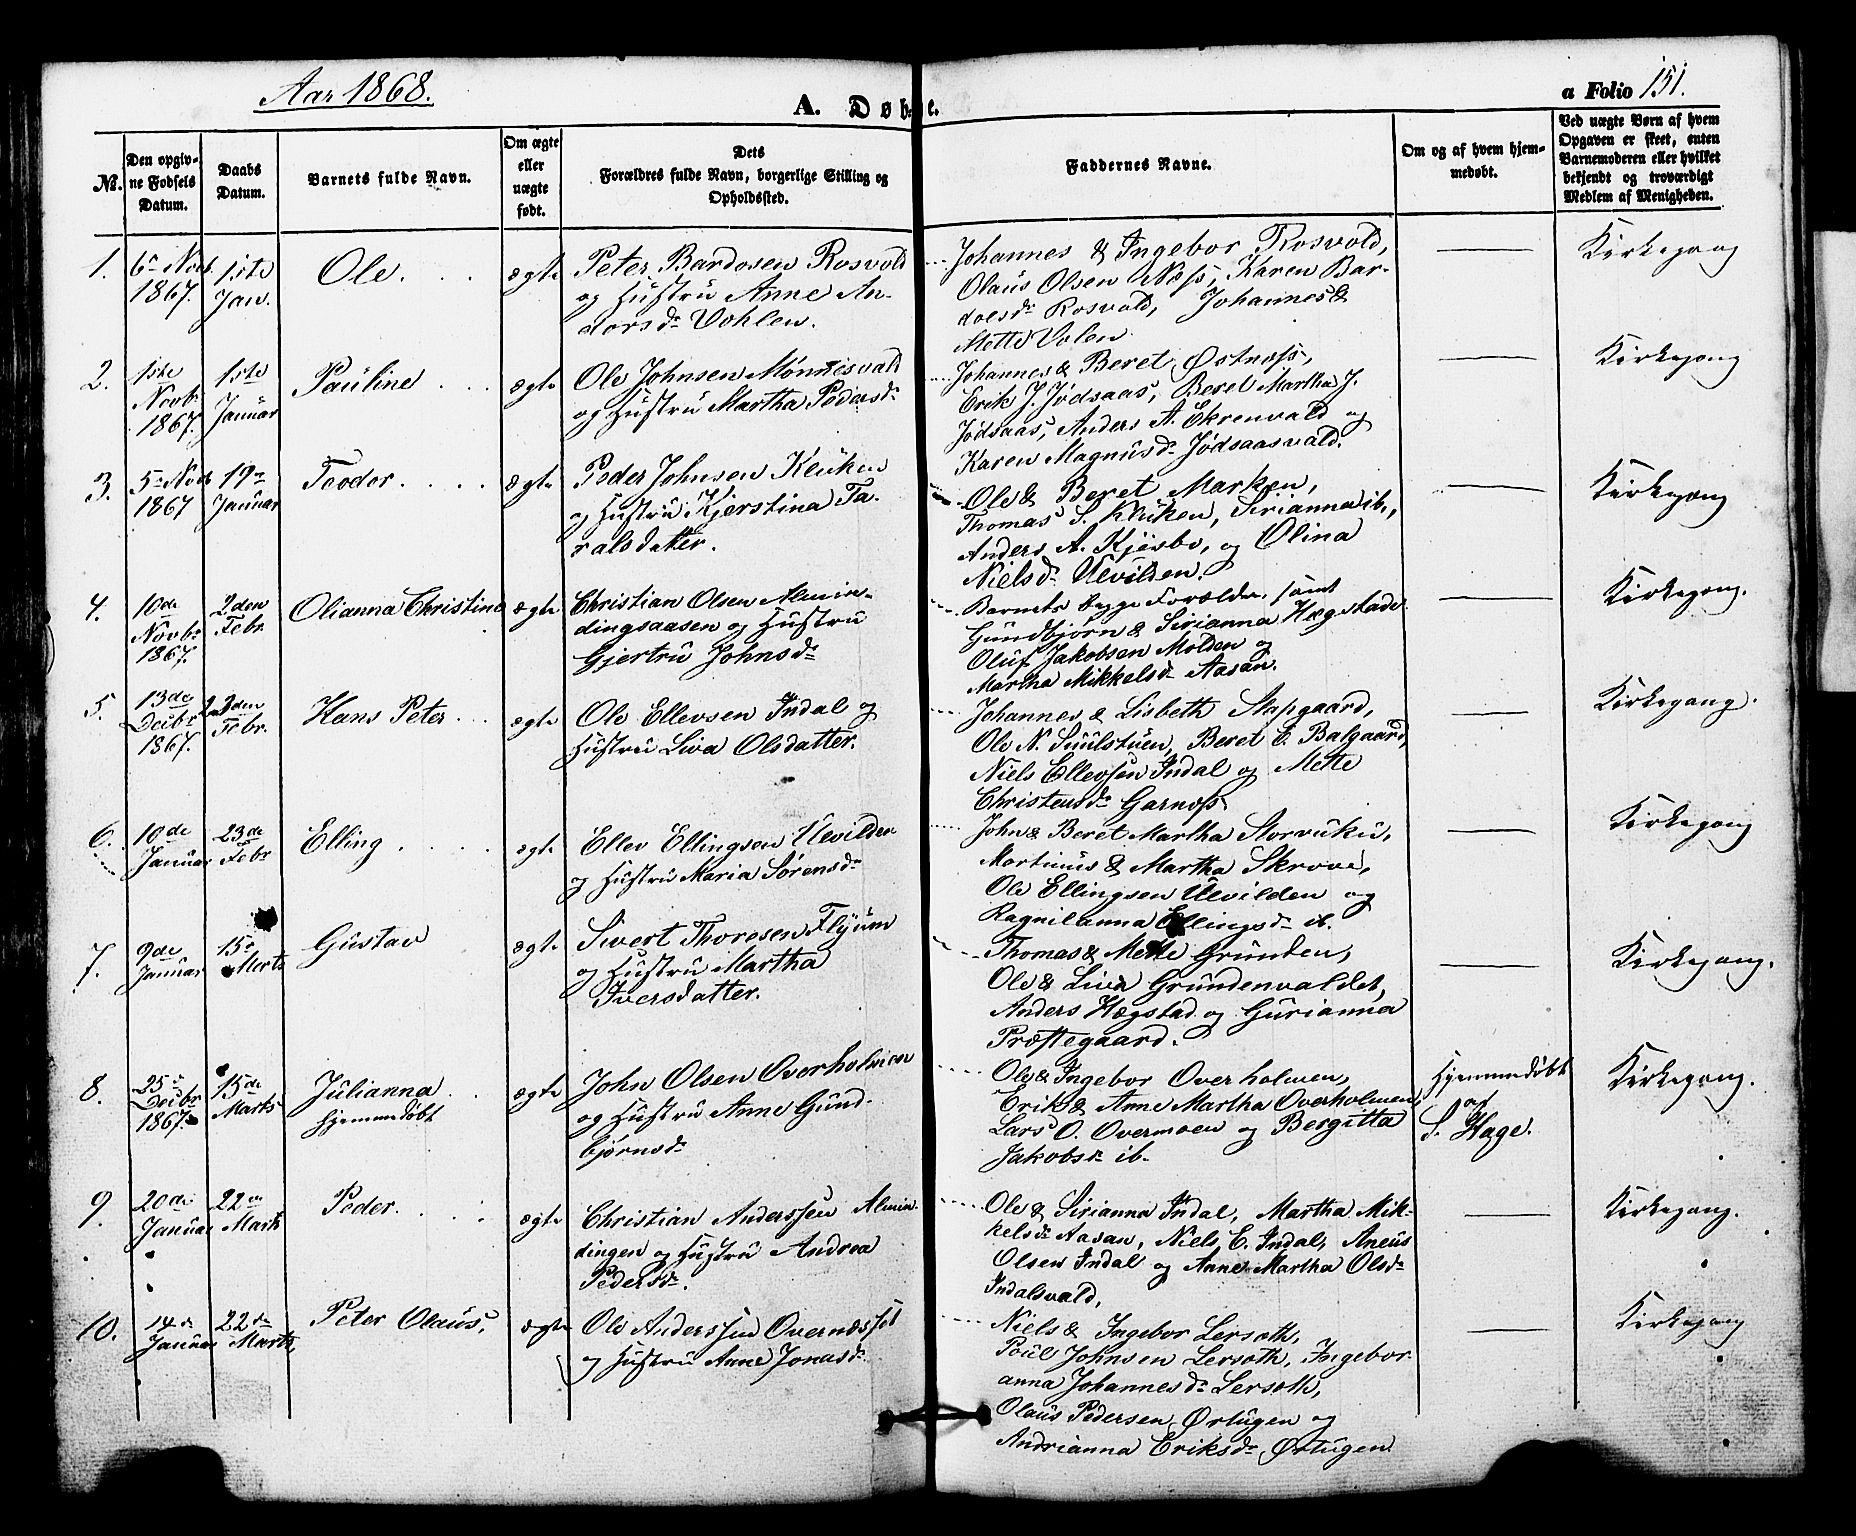 Aar 1868.
A. Døbte.
a Folio 151.
No.
Den opgiv-
ne Fødsels
Datum.
Daabs
Datum.
Barnets fulde Navn.
Om ægte
eller
uægte
født.
Dets
Forældres fulde Navn, borgerlige Stilling og
Opholdssted.
Faddernes Navne.
Om og af hvem hjem-
medøbt.
Ved uægte Børn af hvem
Opgaven er skeet, enten
Barnemoderen eller hvilket
bekjendt og troværdigt
Medlem af Menigheden.
1.
6te Novb.
1867.
1ste
Jan.
Ole.
ægte
Peter Bardosen Rosvold
og Hustru Anne An-
dorsdr Vohlen.
Johannes & Ingebor Rosvold,
Olaus Olsen Næss, Karen Bar-
doesdr Rosvald, Johannes &
Mette Volen
Kirkegang
2.
1ste
Novbr
1867.
1ste
Januar
Pauline
ægte
Ole Johnsen Monnisvald
og Hustru Martha Pedersdr
Johannes & Beret Østnæss,
Erik J. Jødsaas, Beret Martha J.
Jødsaas, Anders A. Ekrenvald og
Karen Magnusdr Jødsaasvald.
Kirkegang
3.
5te Novb
1867
19de
Januar
Teodor.
ægte
Peder Johnsen Kluken
og Hustru Kjerstina Ta-
ralsdatter.
Ole & Beret Marken,
Thomas S. Kluken, Sirianna ib.,
Anders A. Kjesbo, og Olina
Nielsdr Ulvilden.
Kirkegang
4.
10de
Novbr
1867.
2den
Febr.
Olianna Christine
ægte
Christian Olsen Almin-
dingsaasen og Hustru
Gjertru Johnsdr
Barnets begge Forældre samt
Gundbjørn & Sirianna Hægstade
Oluf Jakobsen Molden og
Martha Mikkelsdr Aasan.
Kirkegang.
5.
13de
Decbr
1867.
23den
Febr.
Hans Peter
ægte
Ole Ellevsen Indal og
Hustru Liva Olsdatter.
Johannes & Lisbeth Stapgaard,
Ole N. Suulstuen, Beret E. Balgaard,
Niels Ellevsen Indal og Mette
Christensdr Garnæss.
Kirkegang.
6.
10de
Januar
23de
Febr
Elling
ægte
Ellev Ellingsen Ulvilden
og Hustru Maria Sørensdr
John & Beret Martha Storvuku,
Martinus & Martha Skrove,
Ole Ellingsen Ulvilden og
Ragnilanna Ellingsdr ib.
Kirkegang
7.
9de
Januar
15de
Marts
Gustav
ægte
Sivert Thoresen Flyum
og Hustru Martha
Iversdatter.
Thomas & Mette Grunden,
Ole & Liva Grundenvaldet,
Anders Hægstad og Gurianna
Præstegaard.
Kirkegang.
8.
25de
Decbr
1867.
15de
Marts
Julianna
hjemmedøbt
ægte
John Olsen Overholmen
og Hustru Anne Gund-
bjørnsdr
Ole & Ingebor Overholmen,
Erik & Anne Martha Overholmen,
Lars O. Overmoen og Bergitta
Jakobsdr ib.
Hjemmedøbt
af
S. Hage.
Kirkegang.
9.
20de
Januar
22de
Marts
Peder.
ægte
Christian Anderssen Almin-
dingen og Hustru Andrea
Pedersdr.
Ole & Sirianna Indal, Martha Mik-
kelsdr Aasan, Niels E. Indal, Aneus
Olsen Indal og Anne Martha Olsdr
Indalsvald.
Kirkegang.
10.
14de
Januar
22de
Marts,
Peter Olaus,
ægte
Ole Anderssen Overnæsset
og Hustru Anne Jonasdr.
Niels & Ingebor Lersoth,
Poul Johnsen Lersoth, Ingebor-
anna Johannesdr Lersoth,
Olaus Pedersen Ørtugen og
Andrianna Eriksdr Ørtugen.
Kirkegang